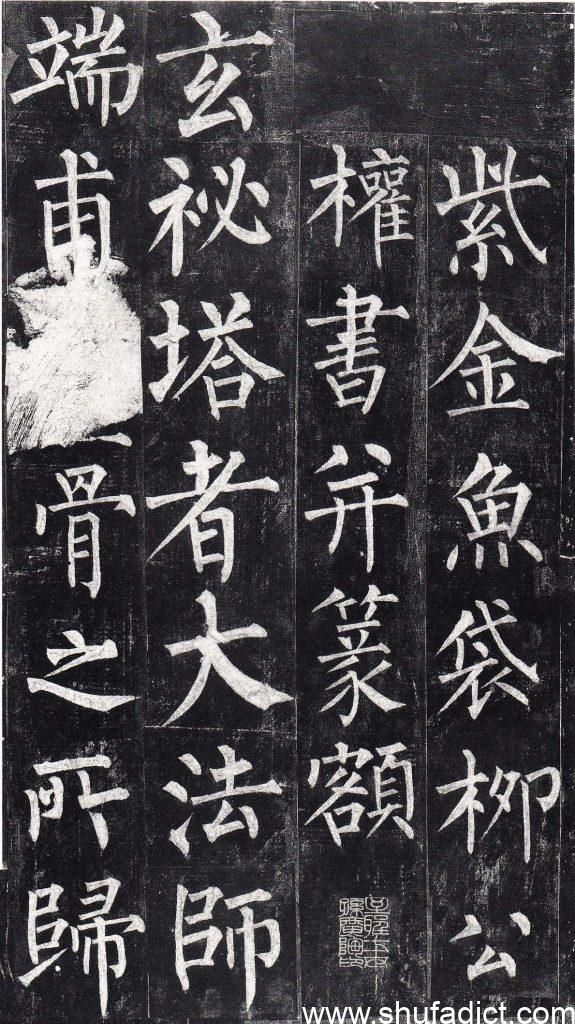 紫金魚袋柳公
權書并篆額
玄祕塔者大法師
端甫骨之所歸
www.shufadict.com